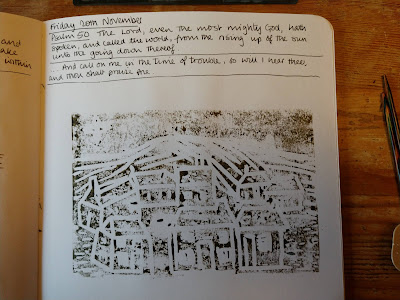 and
ake
within
Friday 20th November
Psalm 50 The Lord, even the most mighty God, hath
spoken, and called the world, from the rising up of the sun
unto the going down thereof
And call on me in the time of trouble, so will I hear thee,
and thou shalt praise me